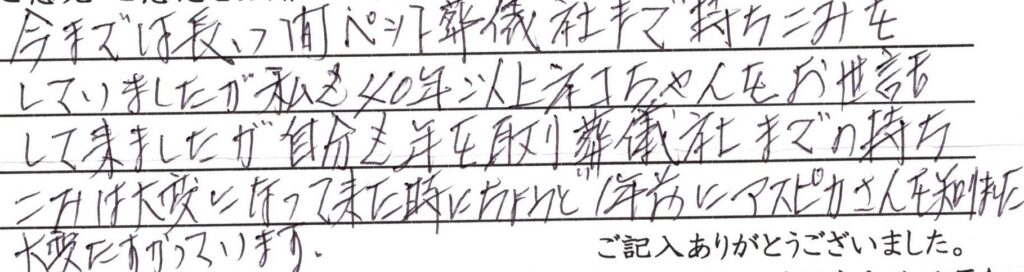 今まではは長い間ペット葬儀社まで持ちこみを
していましたが私も40年以上ネコちゃんをお世話
して来ましたが自分も年を取り葬儀社までの持ち
こみは大変になって来た時にちょうど1年前にアスピカさんを知りました
大変たすかっています.
ご記入ありがとうございました。